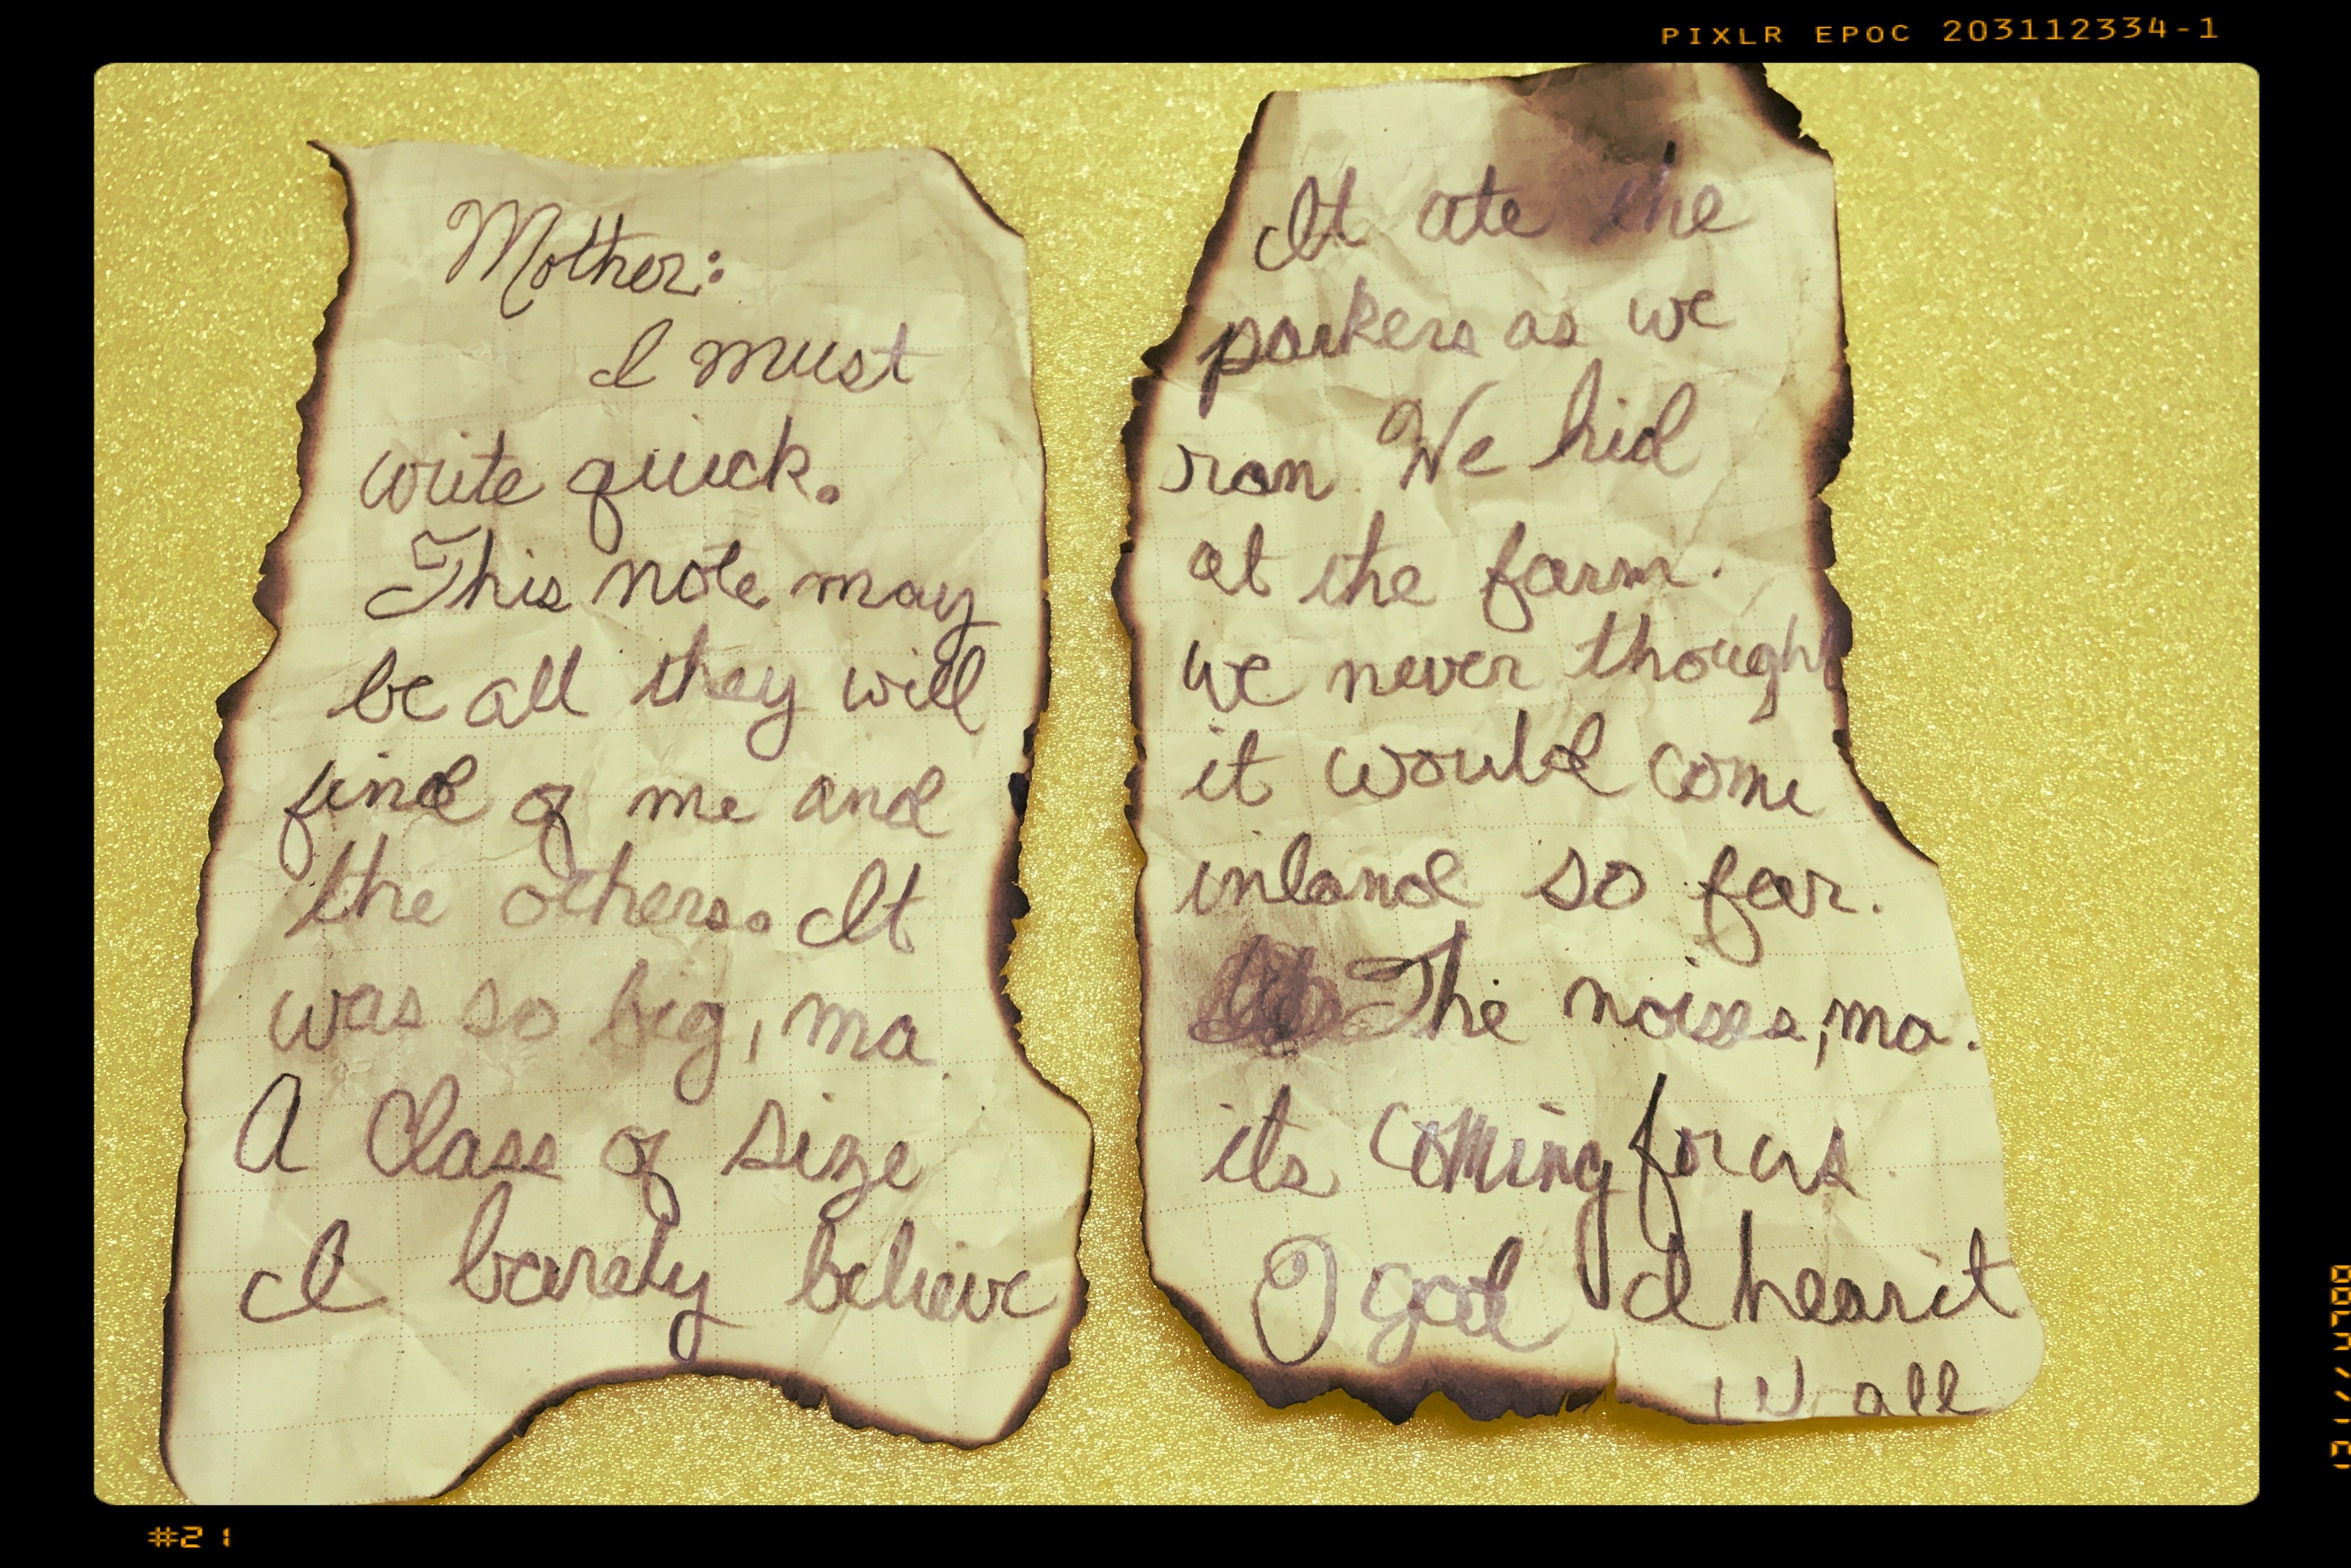 PIXLR EPOC 203112334-1
Mother:
I must
write quick.
This note may
be all they will
find of me and
the others. It
was so big, ma
A class of size
I barely believe
It ate the
parkers as we
ran. We hid
at the farm.
we never though
it would come
inland so far.
The noises, ma.
its coming for us.
O god I hear it
all
#21